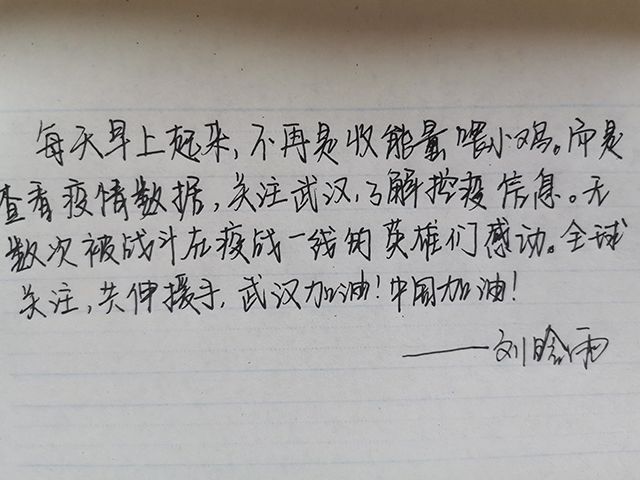 每天早上起来,不再是收能量喂小鸡。而是
查看疫情数据,关注武汉,了解控疫信息。无
数次被战斗在疫战一线的英雄们感动。全球
关注,共伸援手,武汉加油!中国加油!
——刘晗雨